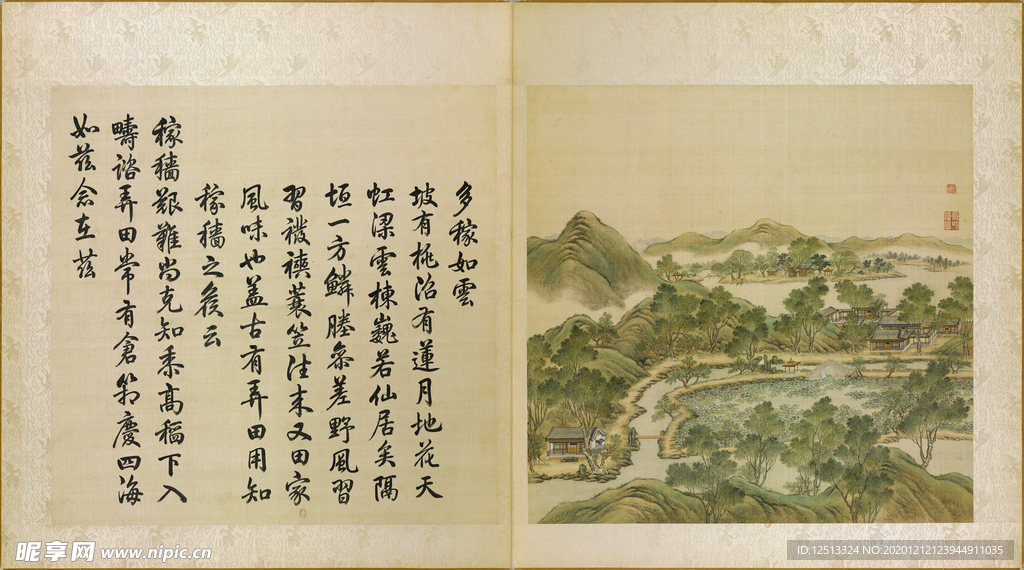 多稼如雲
坡有桃沼有蓮月地花天
虹梁雲棟巍若仙居矣隔
垣一方鱗塍參差野風習
習襏襫蓑笠往來又田家
風味也蓋古有弄田用知
稼穡之候云
稼穡艱難尚克知黍高稲下入
疇諮弄田常有倉箱慶四海
如茲念在茲
昵享网 www.nipic.cn
ID:12513324 NO:20201212123944911035